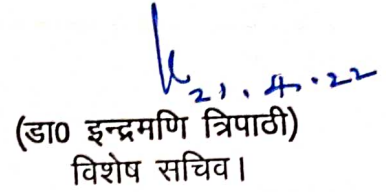 21.4.22
(डा0 इन्द्रमणि त्रिपाठी)
विशेष सचिव।